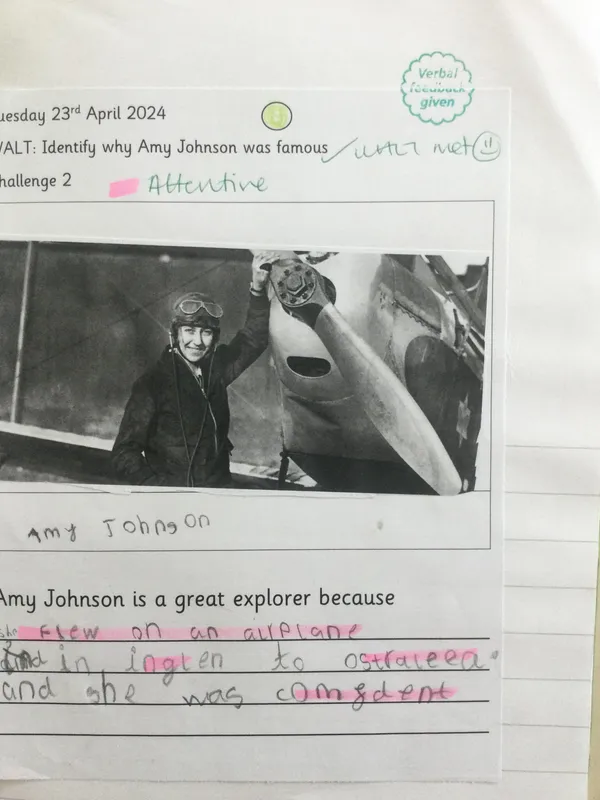 Verbal
feedback
given
uesday 23rd April 2024
/ALT: Identify why Amy Johnson was famous WALT met
hallenge 2 Attentive
Amy Johnson
Amy Johnson is a great explorer because
she flew on an airplane
and in inglen to ostraleea.
and she was comfdent